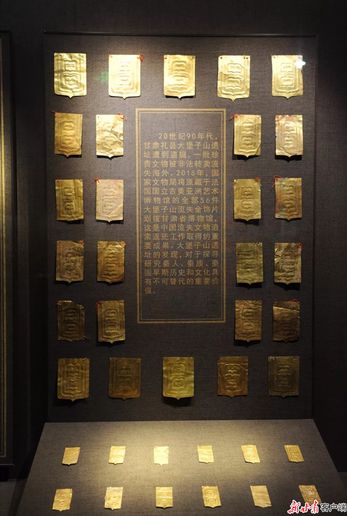 20世纪90年代，
甘肃礼县大堡子山遗
址遭到盗掘，一批珍
贵文物被非法转卖流
失海外。2018年，国
家文物局将原藏于法
国国立吉美亚洲艺术
博物馆的全部56件
大堡子山流失金饰片
划拨甘肃省博物馆，
这是中国流失文物追
索返还工作取得的重
要成果。大堡子山遗
址的发现，对于探寻
研究秦人、秦族、秦
国早期历史和文化具
有不可替代的重要价
值。
新甘肃客户端